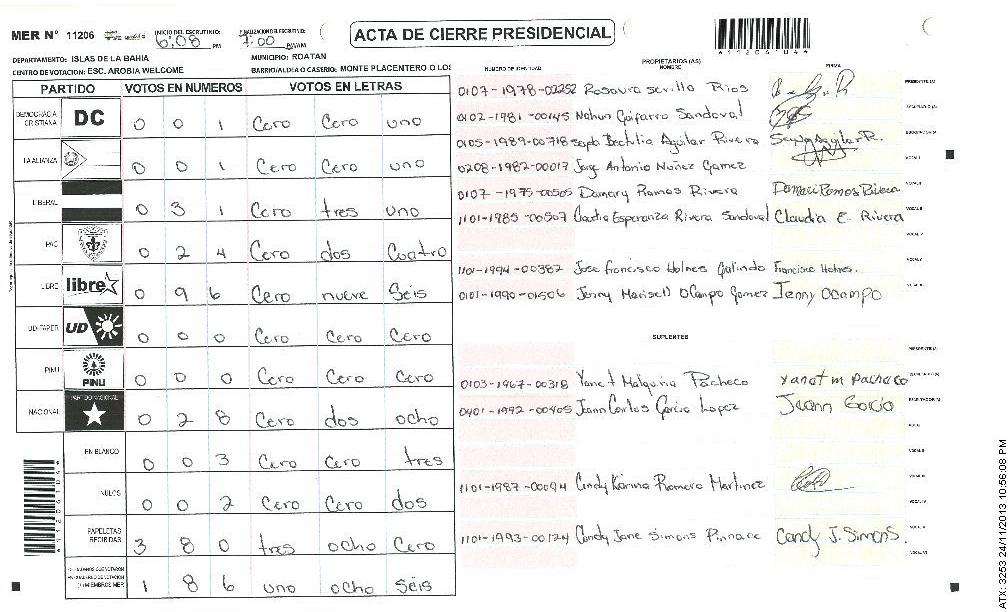 MER N° 11206
INICIO DEL ESCRUTINIO: 6:08 PM
FINALIZACION DEL ESCRUTINIO: 7:00 PM/AM
ACTA DE CIERRE PRESIDENCIAL
DEPARTAMENTO: ISLAS DE LA BAHIA
MUNICIPIO: ROATAN
CENTRO DE VOTACION: ESC. AROBIA WELCOME
BARRIO/ALDEA O CASERIO: MONTE PLACENTERO O LOS
PARTIDO VOTOS EN NUMEROS VOTOS EN LETRAS
DEMOCRACIA CRISTIANA DC 0 0 1 Cero Cero uno
LA ALIANZA 0 0 1 Cero Cero uno
LIBERAL 0 3 1 Cero tres uno
PAC 0 2 4 Cero dos Cuatro
LIBRE libre 0 9 6 Cero nueve Seis
UD-FAPER UD 0 0 0 Cero Cero Cero
PINU PINU 0 0 0 Cero Cero Cero
NACIONAL PARTIDO NACIONAL 0 2 8 Cero dos ocho
EN BLANCO 0 0 3 Cero Cero tres
NULOS 0 0 2 Cero Cero dos
PAPELETAS RECIBIDAS 3 8 0 tres ocho Cero
1 8 6 uno ocho Seis
NUMERO DE IDENTIDAD PROPIETARIOS (AS) NOMBRE FIRMA
0107-1978-02252 Rosaura Sevilla Rios
0102-1981-00145 Nahun Guifarro Sandoval
0105-1989-00718 Bechtlia Aguilar Rivera
0208-1982-00017 Jorge Antonio Nuñez Gamez
0107-1975-00505 Damary Ramos Rivera Damari Ramos Rivera
1101-1985-00507 Claudia Esperanza Rivera Sandoval Claudia E. Rivera
1101-1994-00387 Jose Francisco Holnes Galindo Francisco Holnes.
0101-1990-01506 Jenny Marisell Ocampo Gomez Jenny Ocampo
SUPLENTES
0103-1967-00318 Yanet Malquina Pacheco Yanet m Pacheco
0401-1992-00405 Jeann Carlos Garcia Lopez Jeann Garcia
1101-1987-00094 Cindy Karina Romero Martinez
1101-1993-00124 Candy Jane Simons Pinnace Candy J. Simons.
ATX: 3253 24/11/2013 10:56:08 PM